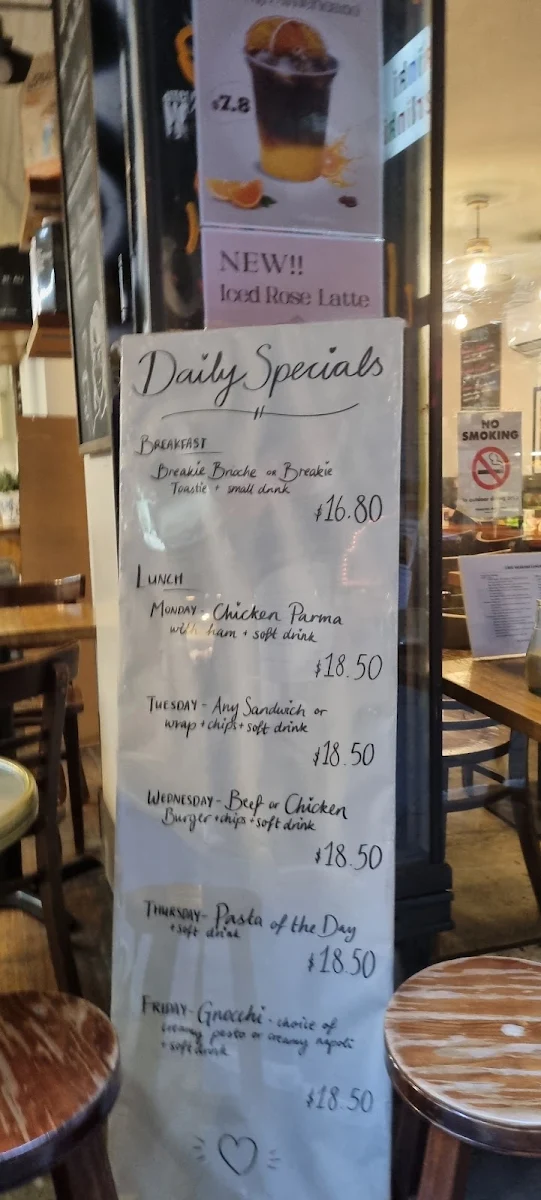 $7.8
NEW!!
Iced Rose Latte
Daily Specials
BREAKFAST
Breakie Brioche or Breakie
Toastie + small drink
$16.80
LUNCH
MONDAY - Chicken Parma
with ham + soft drink
$18.50
TUESDAY - Any Sandwich or
wrap + chips + soft drink
$18.50
WEDNESDAY - Beef or Chicken
Burger + chips + soft drink
$18.50
THURSDAY - Pasta of the Day
+ soft drink
$18.50
FRIDAY - Gnocchi - choice of
creamy pesto or creamy napoli
+ soft drink
$18.50
NO
SMOKING